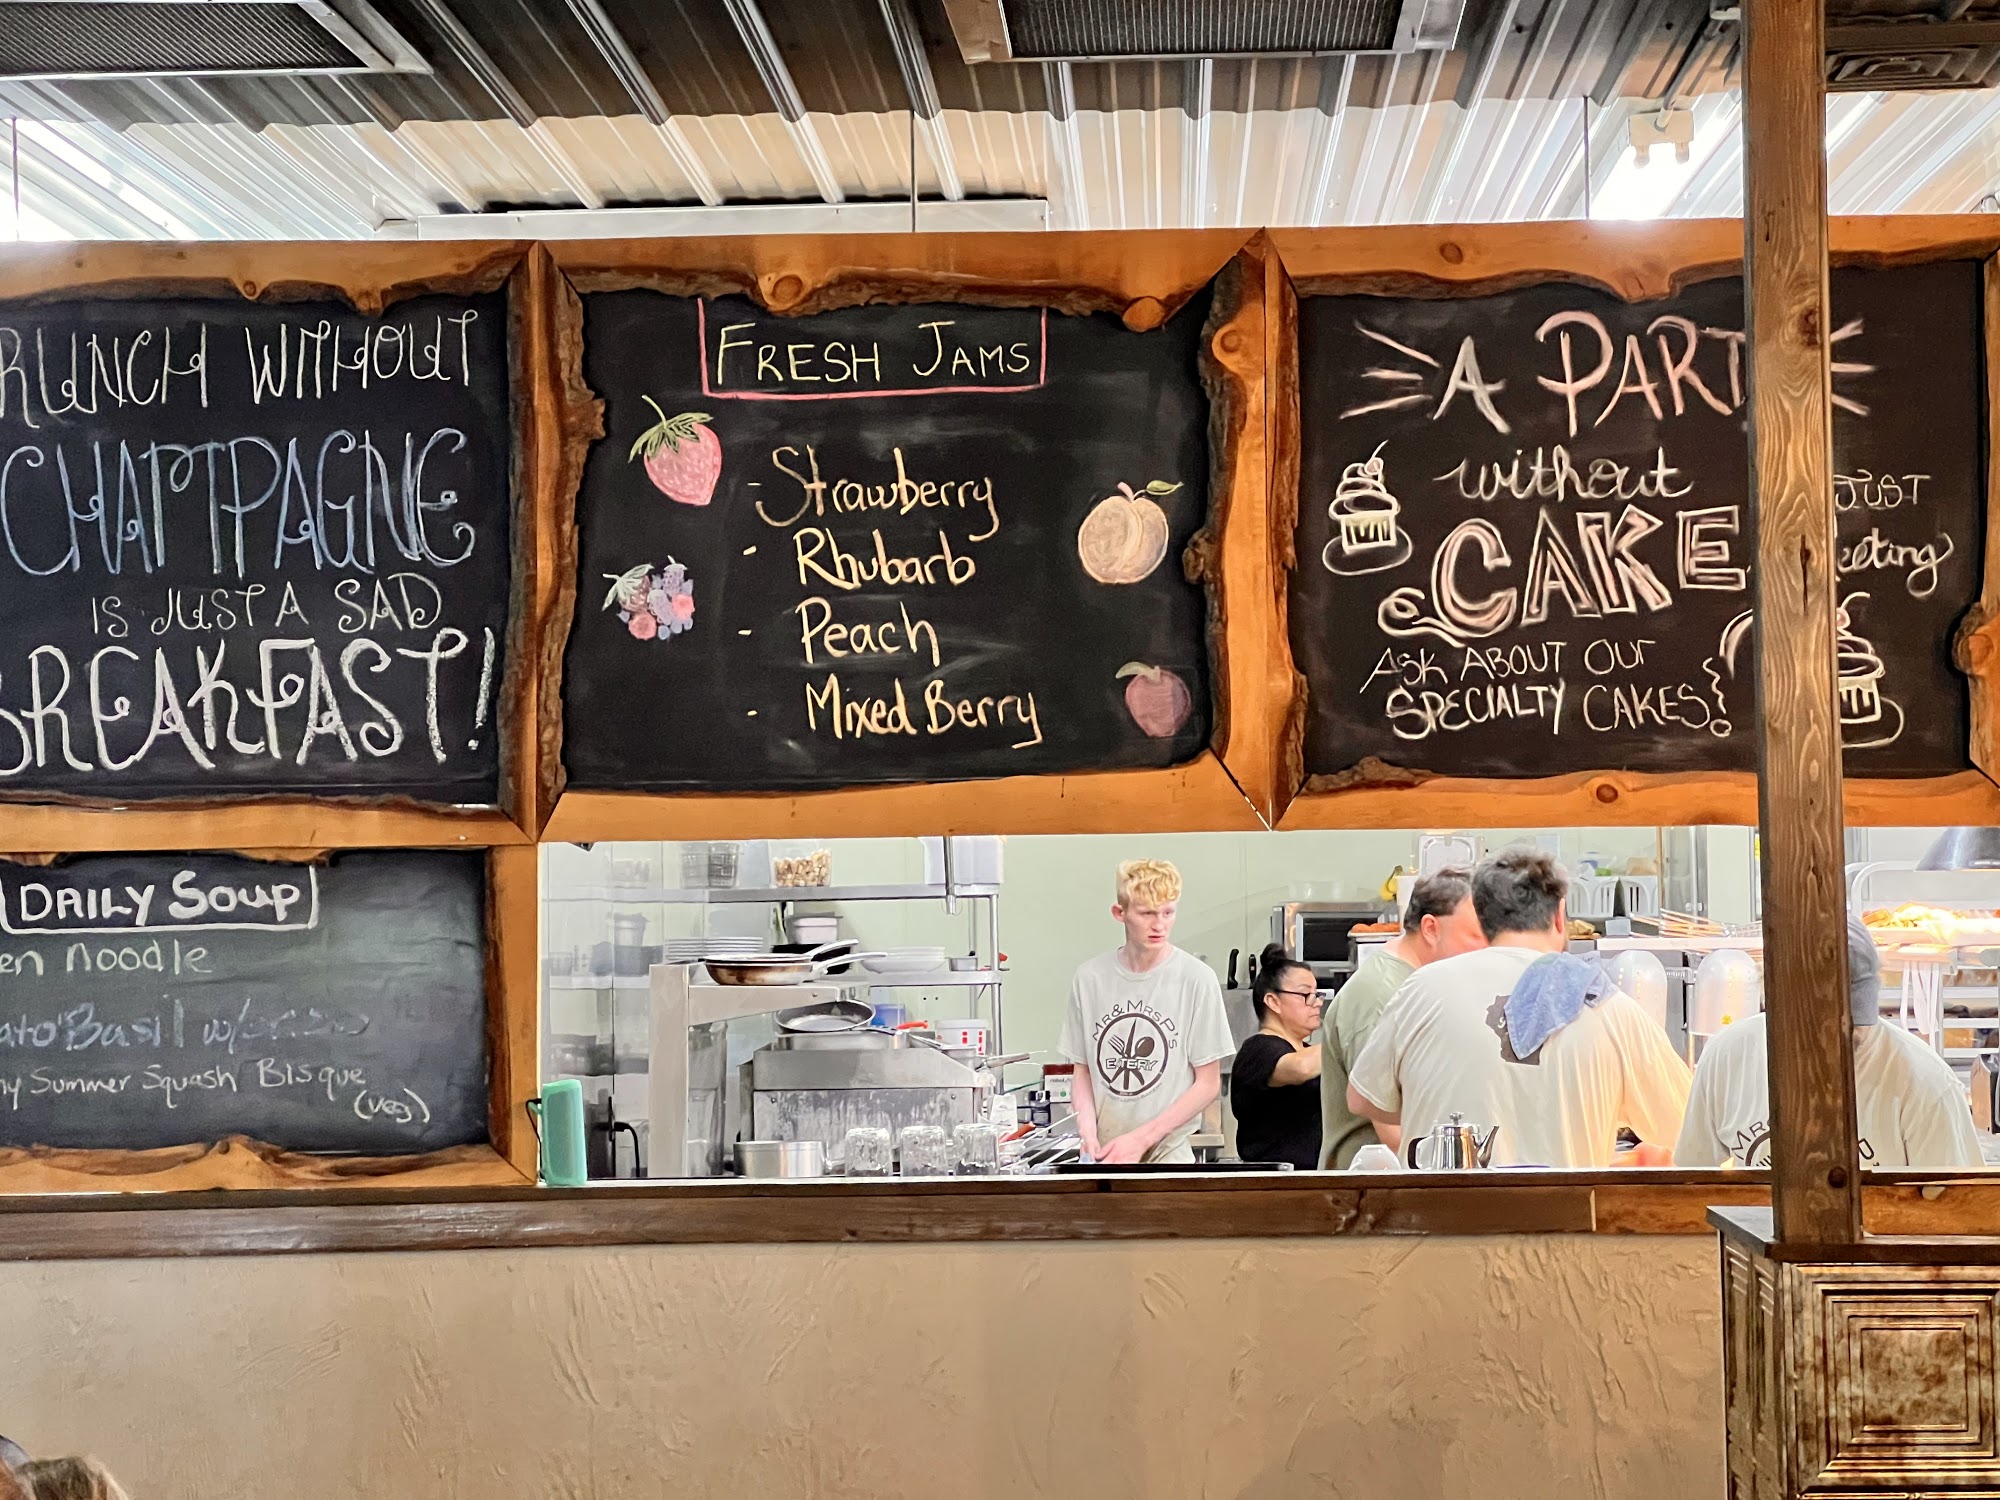 RUNCH WITHOUT
CHAMPAGNE
IS JUST A SAD
BREAKFAST!
DAILY SOUP
en noodle
ato Basil w/
my Summer Squash Bisque
(veg)
FRESH JAMS
- Strawberry
- Rhubarb
- Peach
- Mixed Berry
A PART
without
CAKE
JUST
eeting
ASK ABOUT OUr
SPECIALTY CAKES!
MR & MRS P'S
EATERY
MR